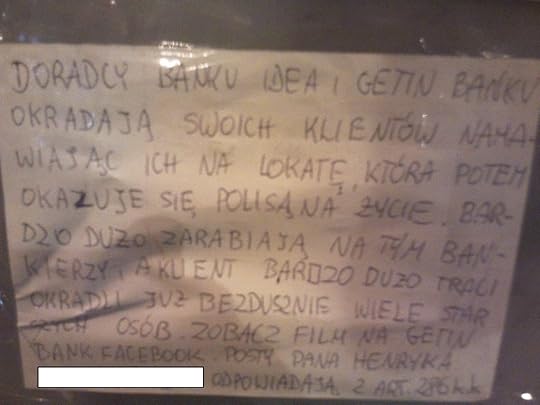 DORADCY BANKU IDEA I GETIN BANKU
OKRADAJĄ SWOICH KLIENTÓW NAMA-
WIAJĄC ICH NA LOKATĘ, KTÓRA POTEM
OKAZUJE SIĘ POLISĄ NA ŻYCIE. BAR-
DZO DUŻO ZARABIAJĄ NA TYM BAN-
KIERZY, A KLIENT BARDZO DUŻO TRACI
OKRADLI JUŻ BEZDUSZNIE WIELE STAR
SZYCH OSÓB. ZOBACZ FILM NA GETIN
BANK FACEBOOK. POSTY PANA HENRYKA
ODPOWIADAJĄ Z ART. 286 k.k